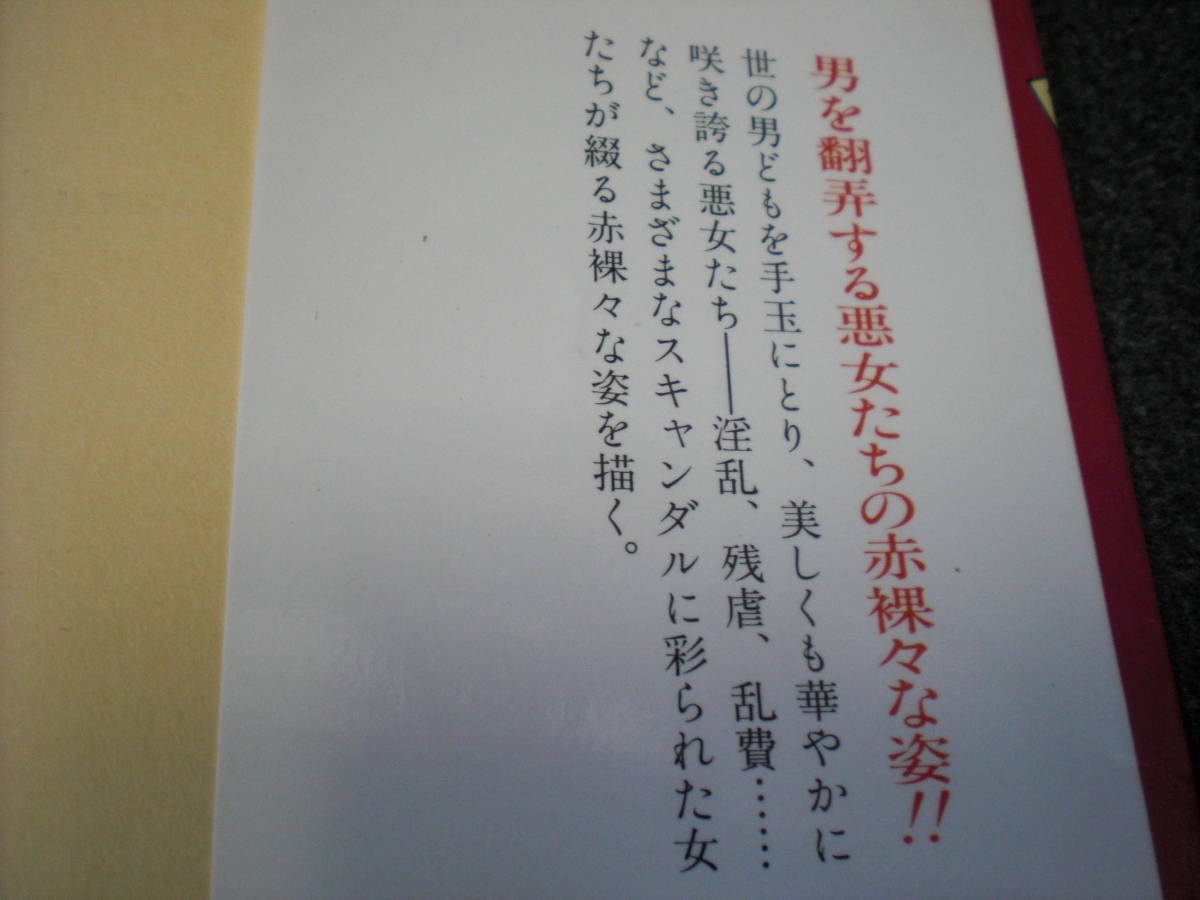 男を翻弄する悪女たちの赤裸々な姿!!
世の男どもを手玉にとり、美しくも華やかに
咲き誇る悪女たち――淫乱、残虐、乱費……
など、さまざまなスキャンダルに彩られた女
たちが綴る赤裸々な姿を描く。